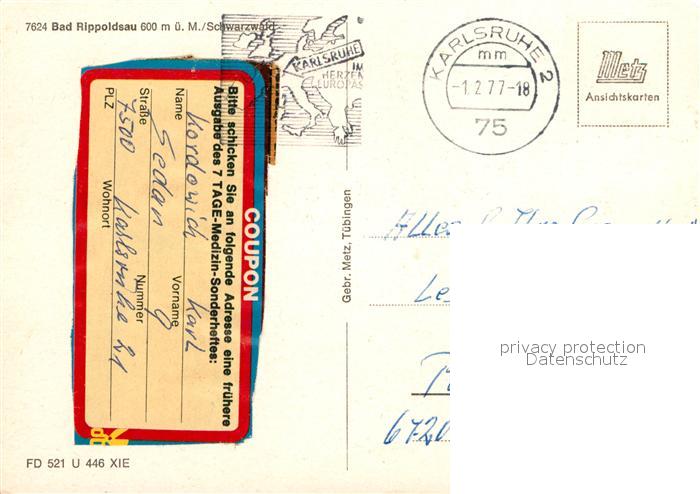 7624 Bad Rippoldsau 600 m ü. M./Schwarzwald
KARLSRUHE
IM
HERZEN
EUROPAS
KARLSRUHE 2
mm
-1.2.77-18
75
Metz
Ansichtskarten
COUPON
Bitte schicken Sie an folgende Adresse eine frühere
Ausgabe des 7 TAGE-Medizin-Sonderheftes:
Kordowich Karl
Name Vorname
Sedan 9
Straße Nummer
7500 Karlsruhe 21
PLZ Wohnort
Gebr. Metz Tübingen
6720
privacy protection
Datenschutz
FD 521 U 446 XIE